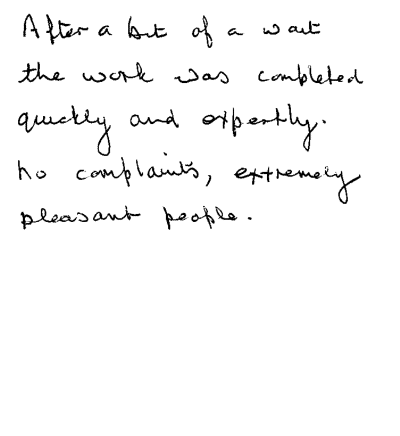 After a bit of a wait
the work was completed
quickly and expertly.
No complaints, extremely
pleasant people.